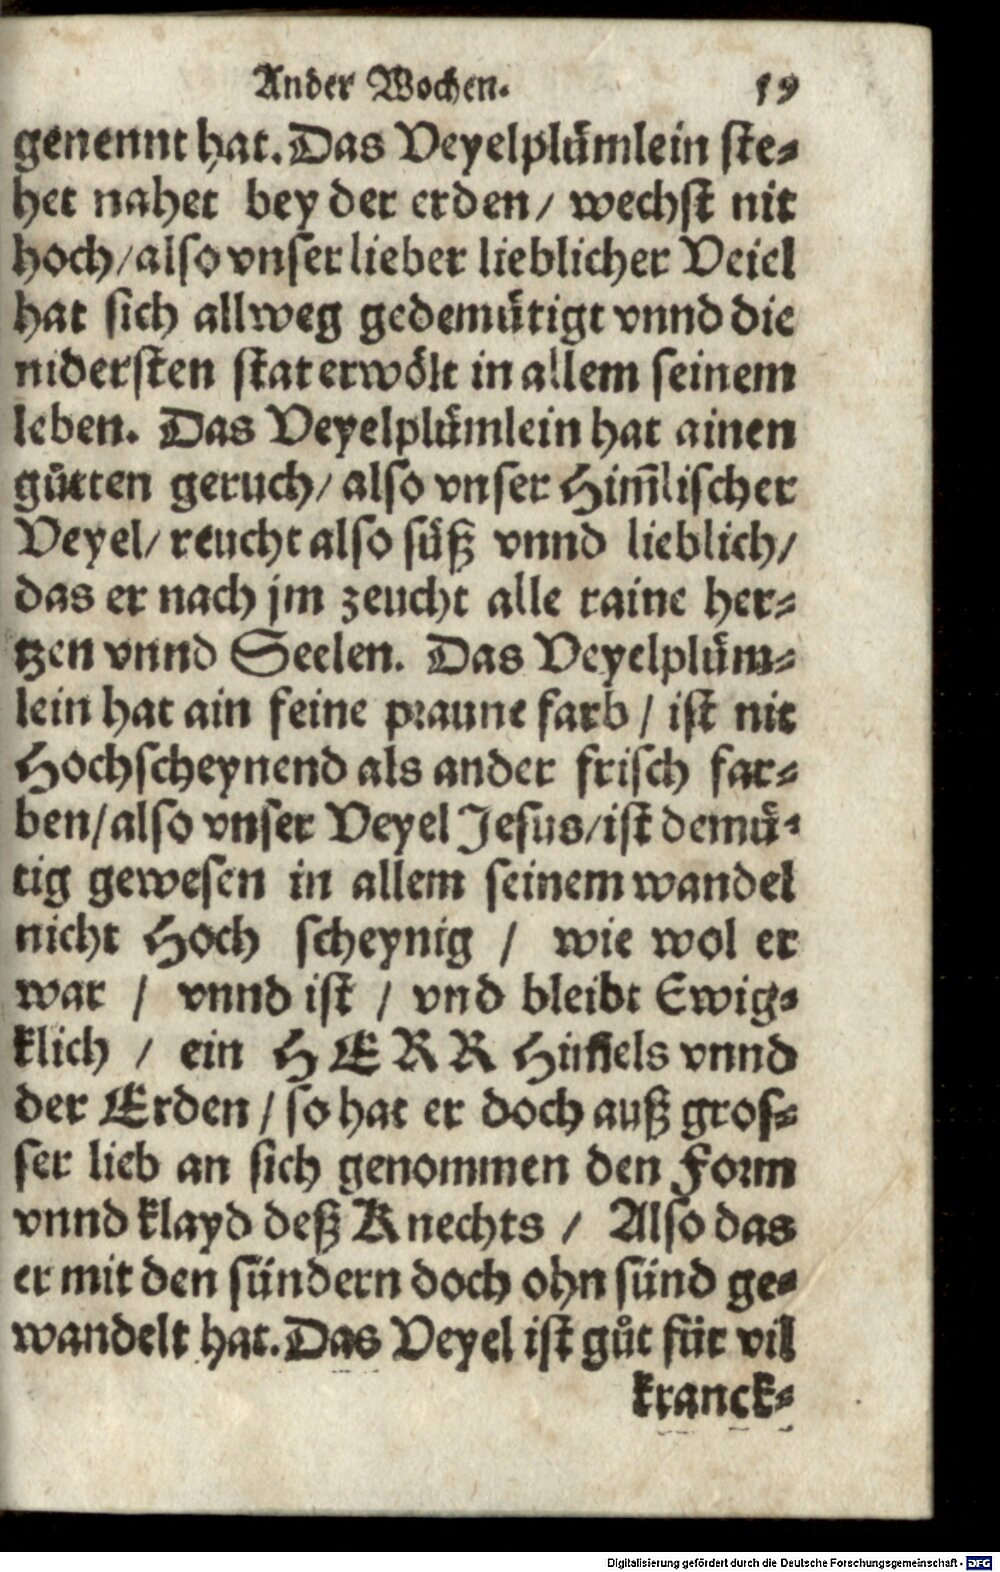 Ander Wochen. 19
genennt hat. Das Veyelplůmlein ste-
het nahet bey der erden / wechst nit
hoch / also vnser lieber lieblicher Veiel
hat sich allweg gedemůtigt vnnd die
nidersten stat erwölt in allem seinem
leben. Das Veyelplůmlein hat ainen
gůtten geruch / also vnser Him̃lischer
Veyel / reucht also sůß vnnd lieblich /
das er nach jm zeucht alle raine her-
tzen vnnd Seelen. Das Veyelplům-
lein hat ain feine praune farb / ist nit
Hochscheynend als ander frisch far-
ben / also vnser Veyel Jesus / ist demů-
tig gewesen in allem seinem wandel
nicht Hoch scheynig / wie wol er
war / vnnd ist / vnd bleibt Ewig-
klich / ein HERR Him̃els vnnd
der Erden / so hat er doch auß gros-
ser lieb an sich genommen den Form
vnnd klayd deß Knechts / Also das
er mit den sündern doch ohn sünd ge-
wandelt hat. Das Veyel ist gůt für vil
kranck-
Digitalisierung gefördert durch die Deutsche Forschungsgemeinschaft - DFG